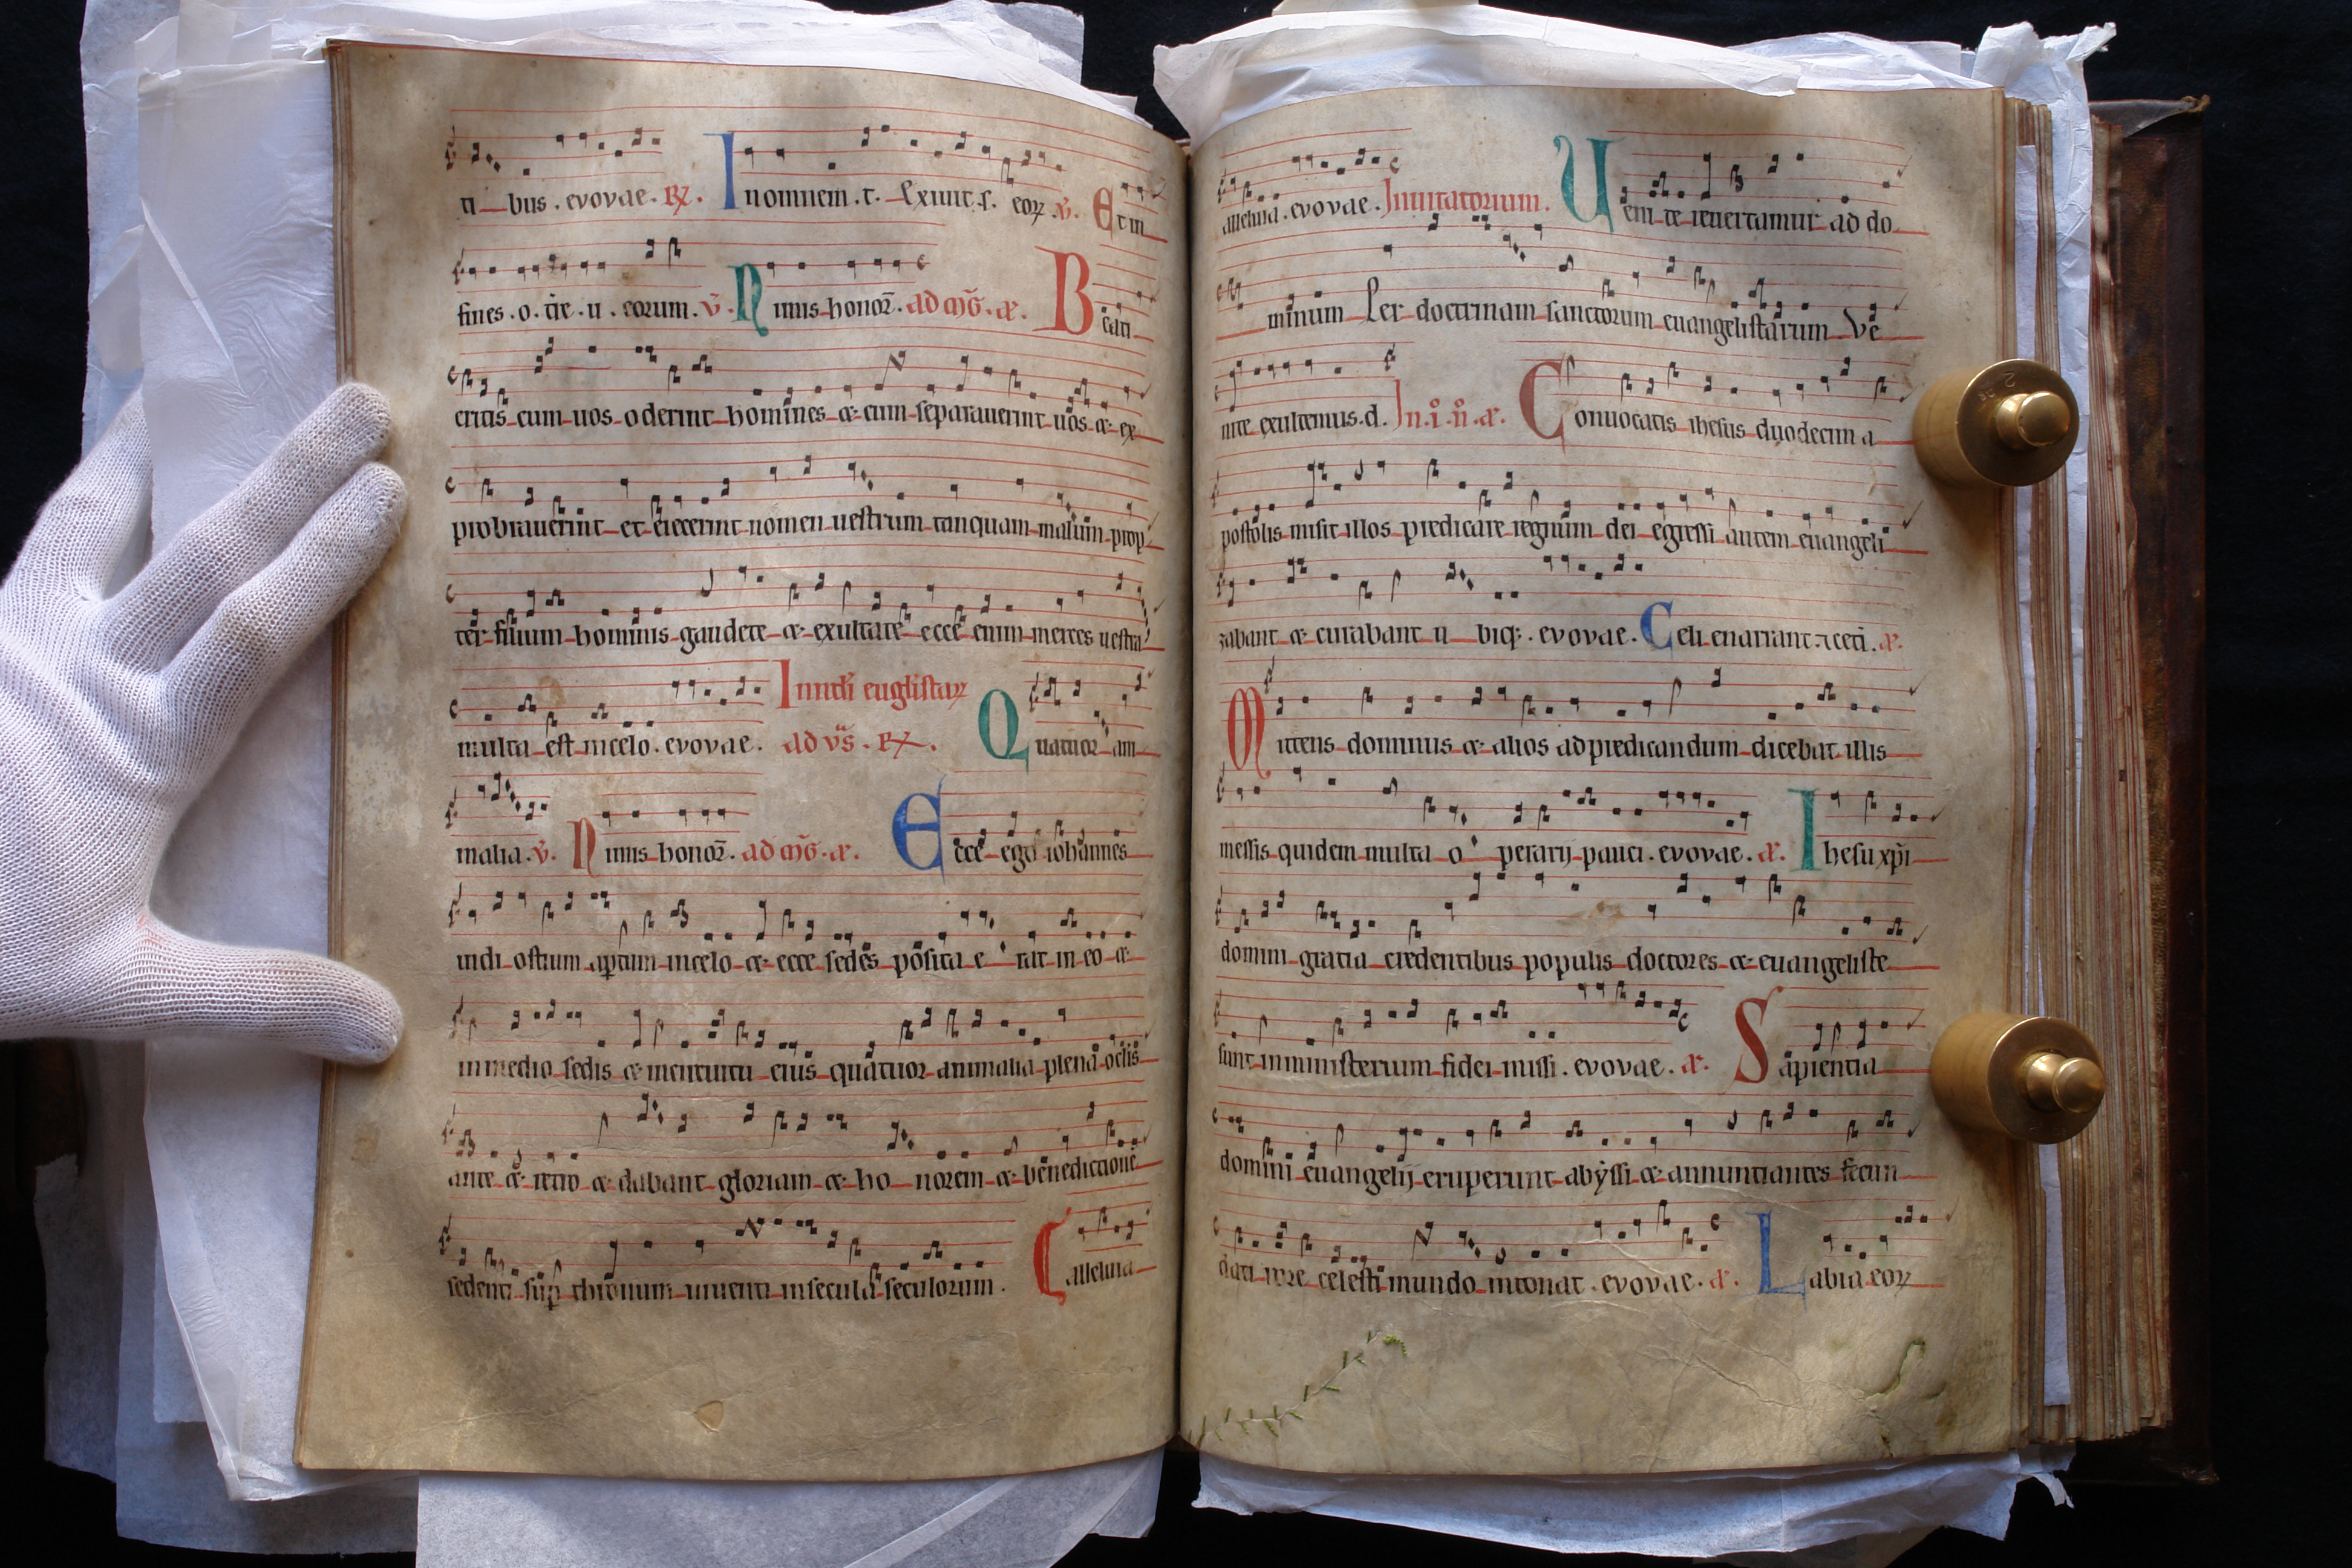 ti bus . evovae . R. In omnem . t. Exiuit . s. eoꝝ . v̄. Et in
fines . o . t̄re . u . eorum . v̄. Nimis honor̄. ad mḡ . a. Beati
eritis cum uos oderint homines & cum separauerint uos & ex
probrauerint et eiecerint nomen uestrum tanquam malum prop
ter filium hominis gaudete & exultate ecce enim merces uestra
multa est in celo . evovae . In nat̄i euglistaꝝ
ad vs̄ . R. Quatuor am
malia . v̄. Nimis honor̄. ad mḡ . a. Ecce ego iohannes
uidi ostium aptum in celo & ecce sedes posita e rat in eo &
in medio sedis & in circuitu eius quatuor animalia plena oclis
ante & retro & dabant gloriam & ho norem & benedictionē
sedenti sup thronum uiuenti in secula seculorum . Alleluia
alleluia . evovae . Inuitatorium . Uenite reuertamur ad do
minum Per doctrinam sanctorum euangelistarum Ve
nite exultemus . d. In . i . n . a. Conuocatis ihesus duodecim a
postolis misit illos predicare regnum dei egressi autem euangeli
zabant & curabant u biqꝫ . evovae . Celi enarrant . a.
Mittens dominus & alios ad predicandum dicebat illis
messis quidem multa o perarij pauci . evovae . a. Ihesu xp̄i
domini gratia credentibus populis doctores & euangeliste
sunt in ministerium fidei missi . evovae . a. Sapientia
domini euangelij eruperunt abyssi & annunciantes secun
dati rore celesti mundo intonat . evovae . a. Labia eoꝝ